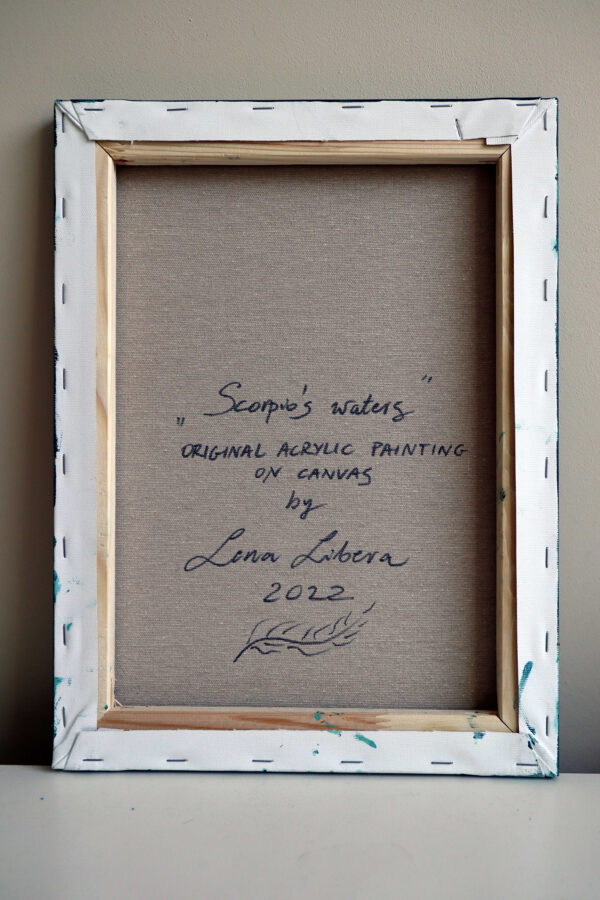 „Scorpio's waters"
ORIGINAL ACRYLIC PAINTING
ON CANVAS
by
Lena Libera
2022